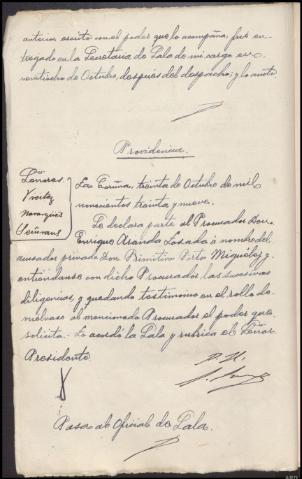 anterior escrito con el poder que lo acompaña, fué en-
tregado en la Secretaría de Sala de mi cargo en
veintiocho de Octubre, despues del despacho; y lo anoto
Providencia.
Señores
La Coruña, treinta de Octubre de mil
novecientos treinta y nueve.
Se declara parte al Procurador Don
Enrique Aranda Losada a nombre del
acusador privado Don Primitivo Pita Miguélez y
entiéndanse con dicho Procurador, las sucesivas
diligencias, y quedando testimonio en el rollo de-
vuélvase al mencionado Procurador el poder que
solicita. Lo acordó la Sala y rubrica el Señor
Presidente
Pasa al Oficial de Sala.